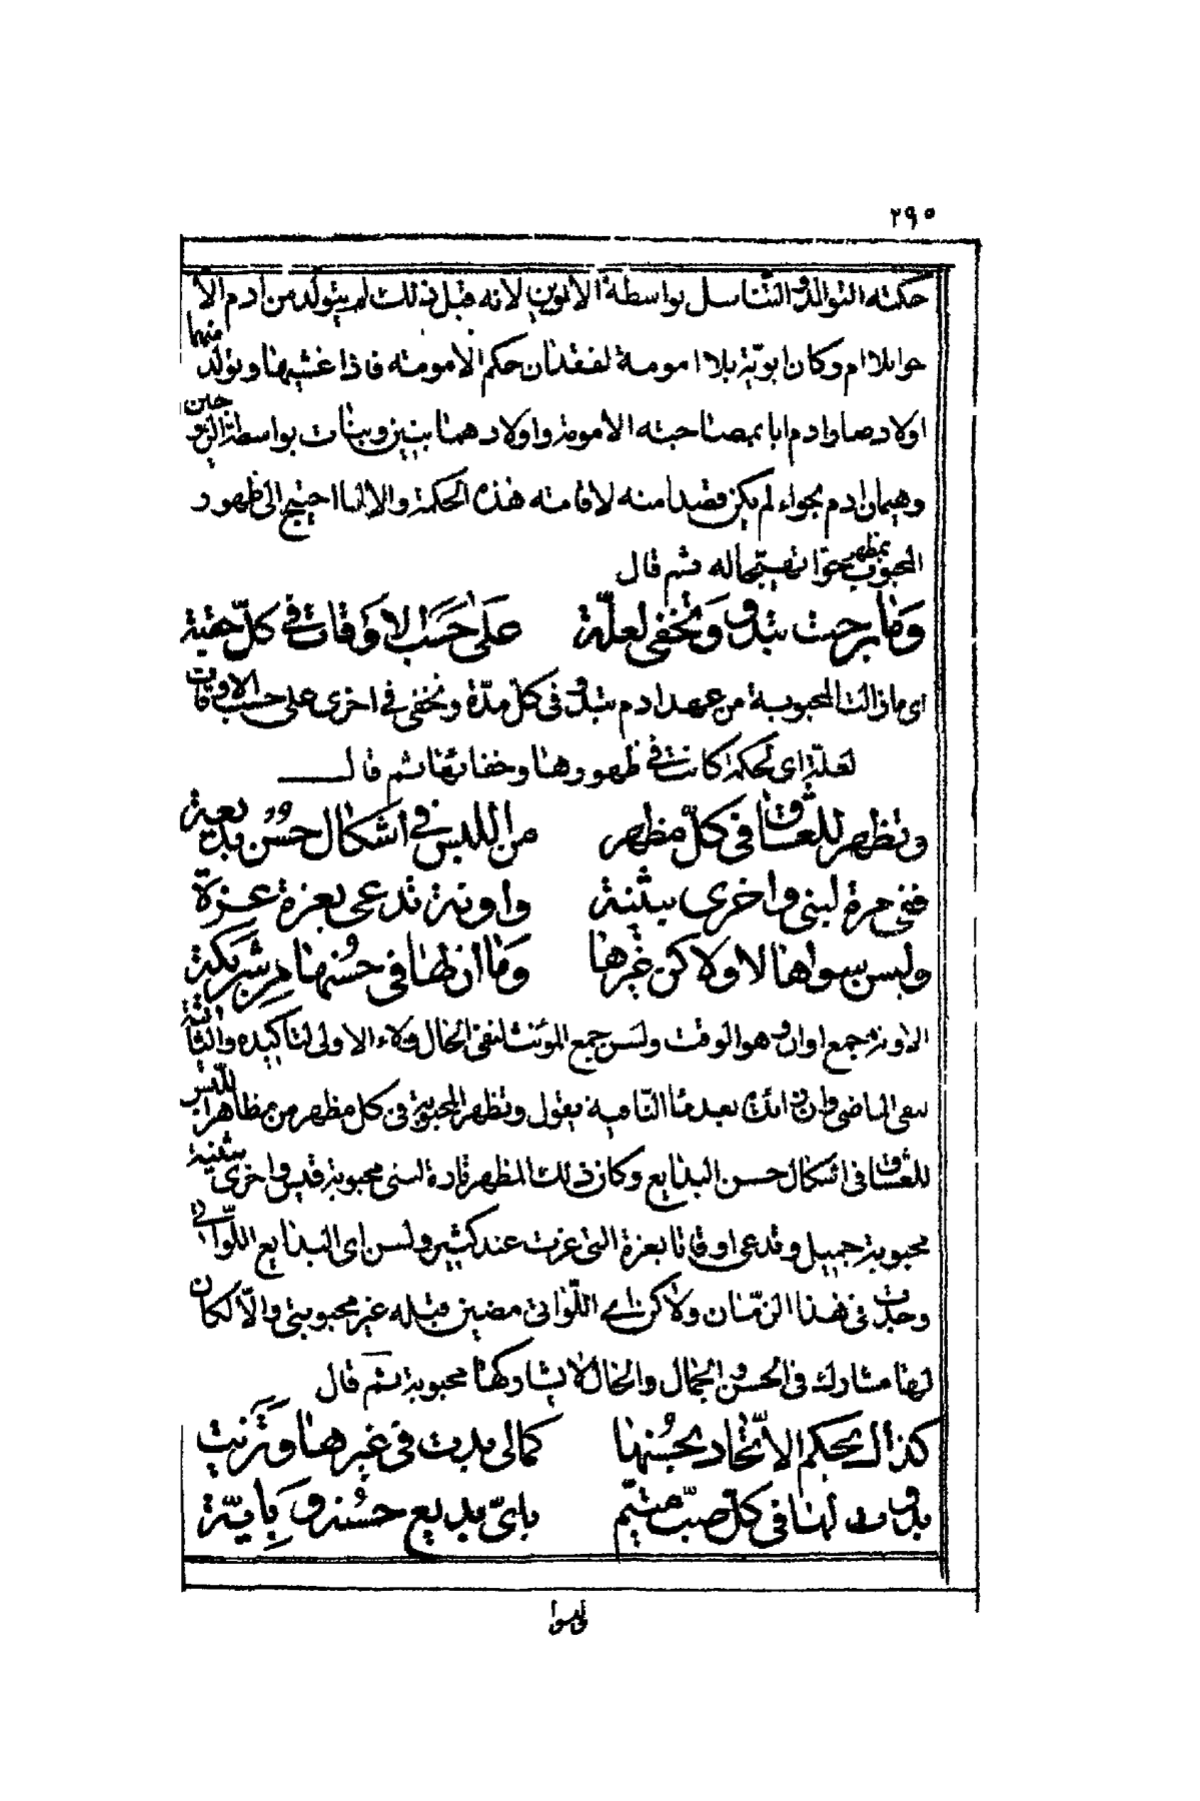 ٢٩٥
حكمته التوالد والتناسل بواسطة الابوين لانه قبل ذلك لم يتولد من ادم الا
حوا بلا ام وكان ابويّته بلا امومة لفقدان حكم الامومته فاذا غشيها وتولد منهما
اولاد صار ادم ابا بمصاحبته الامومة واولادهما بنين وبنات بواسطة الزوجين
وهيمان ادم بحواء لم يكن قصدا منه لاقامته هذه الحكمة والا لما احتيج الى ظهور
المحبوب بمظهر حوّا تهييجا له ثم قال
وَمَا برحت تبدو وَتخفى لعلّة    عَلى حَسَب الاوَقات في كلّ حقبة
اى ما زالت المحبوبية من عهد ادم تبدو فى كل مدّة وتخفى في اخرى على حسب الاوقات
لعلّة اى لحكمة كانت في ظهورها وخفائها ثم قال
وتظهر للعشّاق فى كلّ مظهر    من اللبس في اشكال حسُن بديعة
ففى مرة لبنى واخرى ببثينة    واونة تدعى بعزة عزة
وليس سواها لا ولا كن غيرها    وَما ان لها فى حسُنها مِن شَريكة
الاونة جمع اوان وهو الوقت وليس جمع المؤنث لنفى الحال ولاء الاولى لتاكيده والثانية
لنفى الماضى وان زائدة بعد ما النّافية يقول وتظهر المحبوبة فى كل مظهر من مظاهر اللّبس
للعشاق فى اشكال حسن البدايع وكان ذلك المظهر تارة لبنى محبوبة قيس واخرى بثينة
محبوبة جميل وتدعى اوقاتا بعزة التى عزت عند كثير وليس اى البدايع اللّواتى
وجدت فى هذا الزّمان ولا كن اى اللّواتى مضين قبله غير محبوبتى والّا لكان
لها مشارك فى الحسن والجمال والحال لا يشاركها محبوبة ثم قال
كذاك بحكم الاتّحاد بحُسنها    كما لى بدت فى غيرها وَتزَيت
بدوت لها فى كلّ صبّ متيّم    باىّ بديع حسُنه وَبِايّة